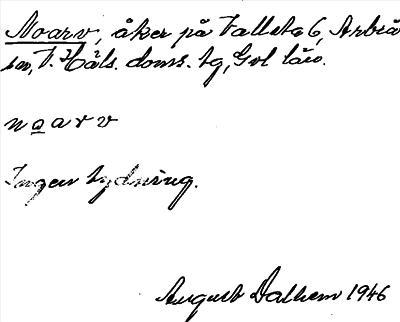 Noarv, åker på Vallsta 6, Arbrå
sn, V. Häls. doms. bg, Gvl län.
n o a r v
Ingen tydning.
August Dalhem 1946